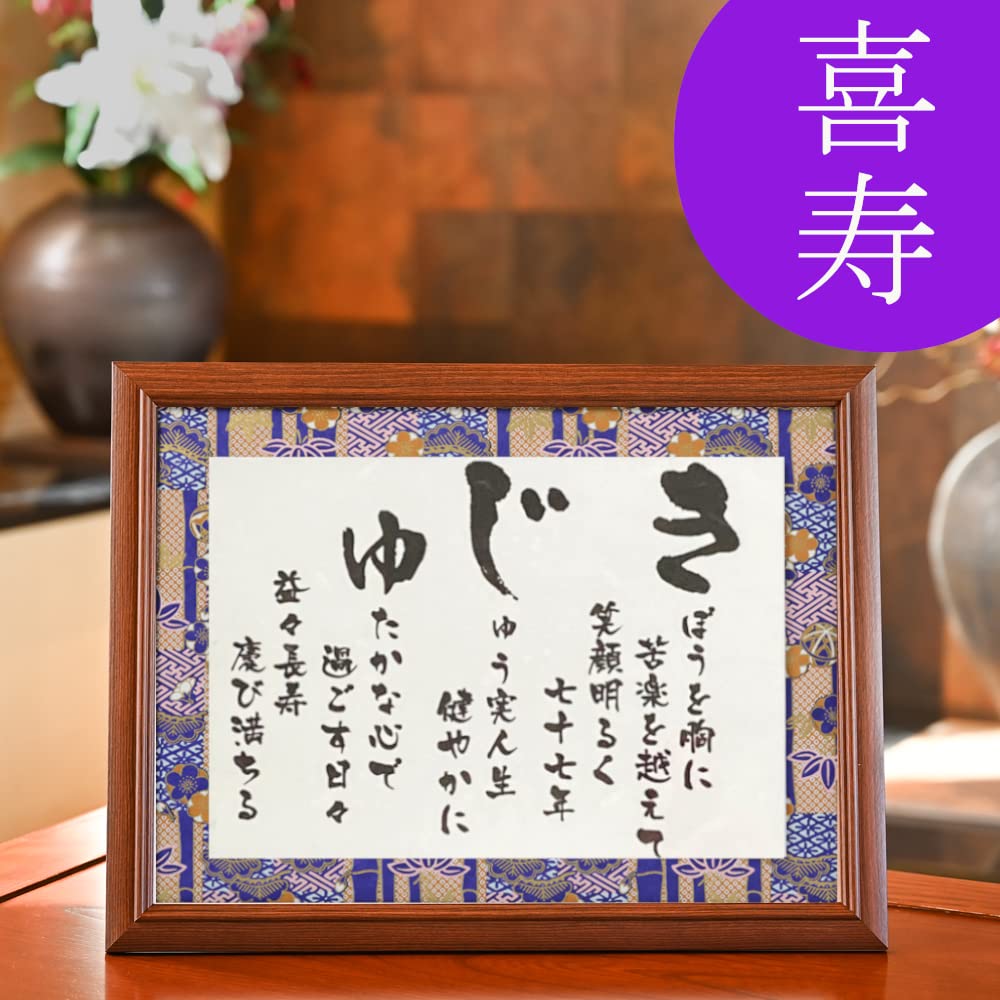 喜寿
きぼうを胸に
苦楽を越えて
笑顔明るく
七十七年
じゅう実人生
健やかに
ゆたかな心で
過ごす日々
益々長寿
慶び満ちる